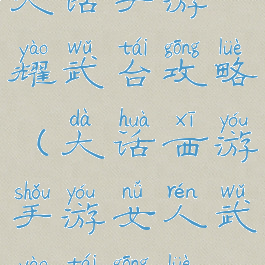 大话手游
yào wǔ tái gōng lüè
耀武台攻略
dà huà xī yóu
（大话西游
shǒu yóu nǚ rén wǔ
手游女人武
yào tái gōng lüè